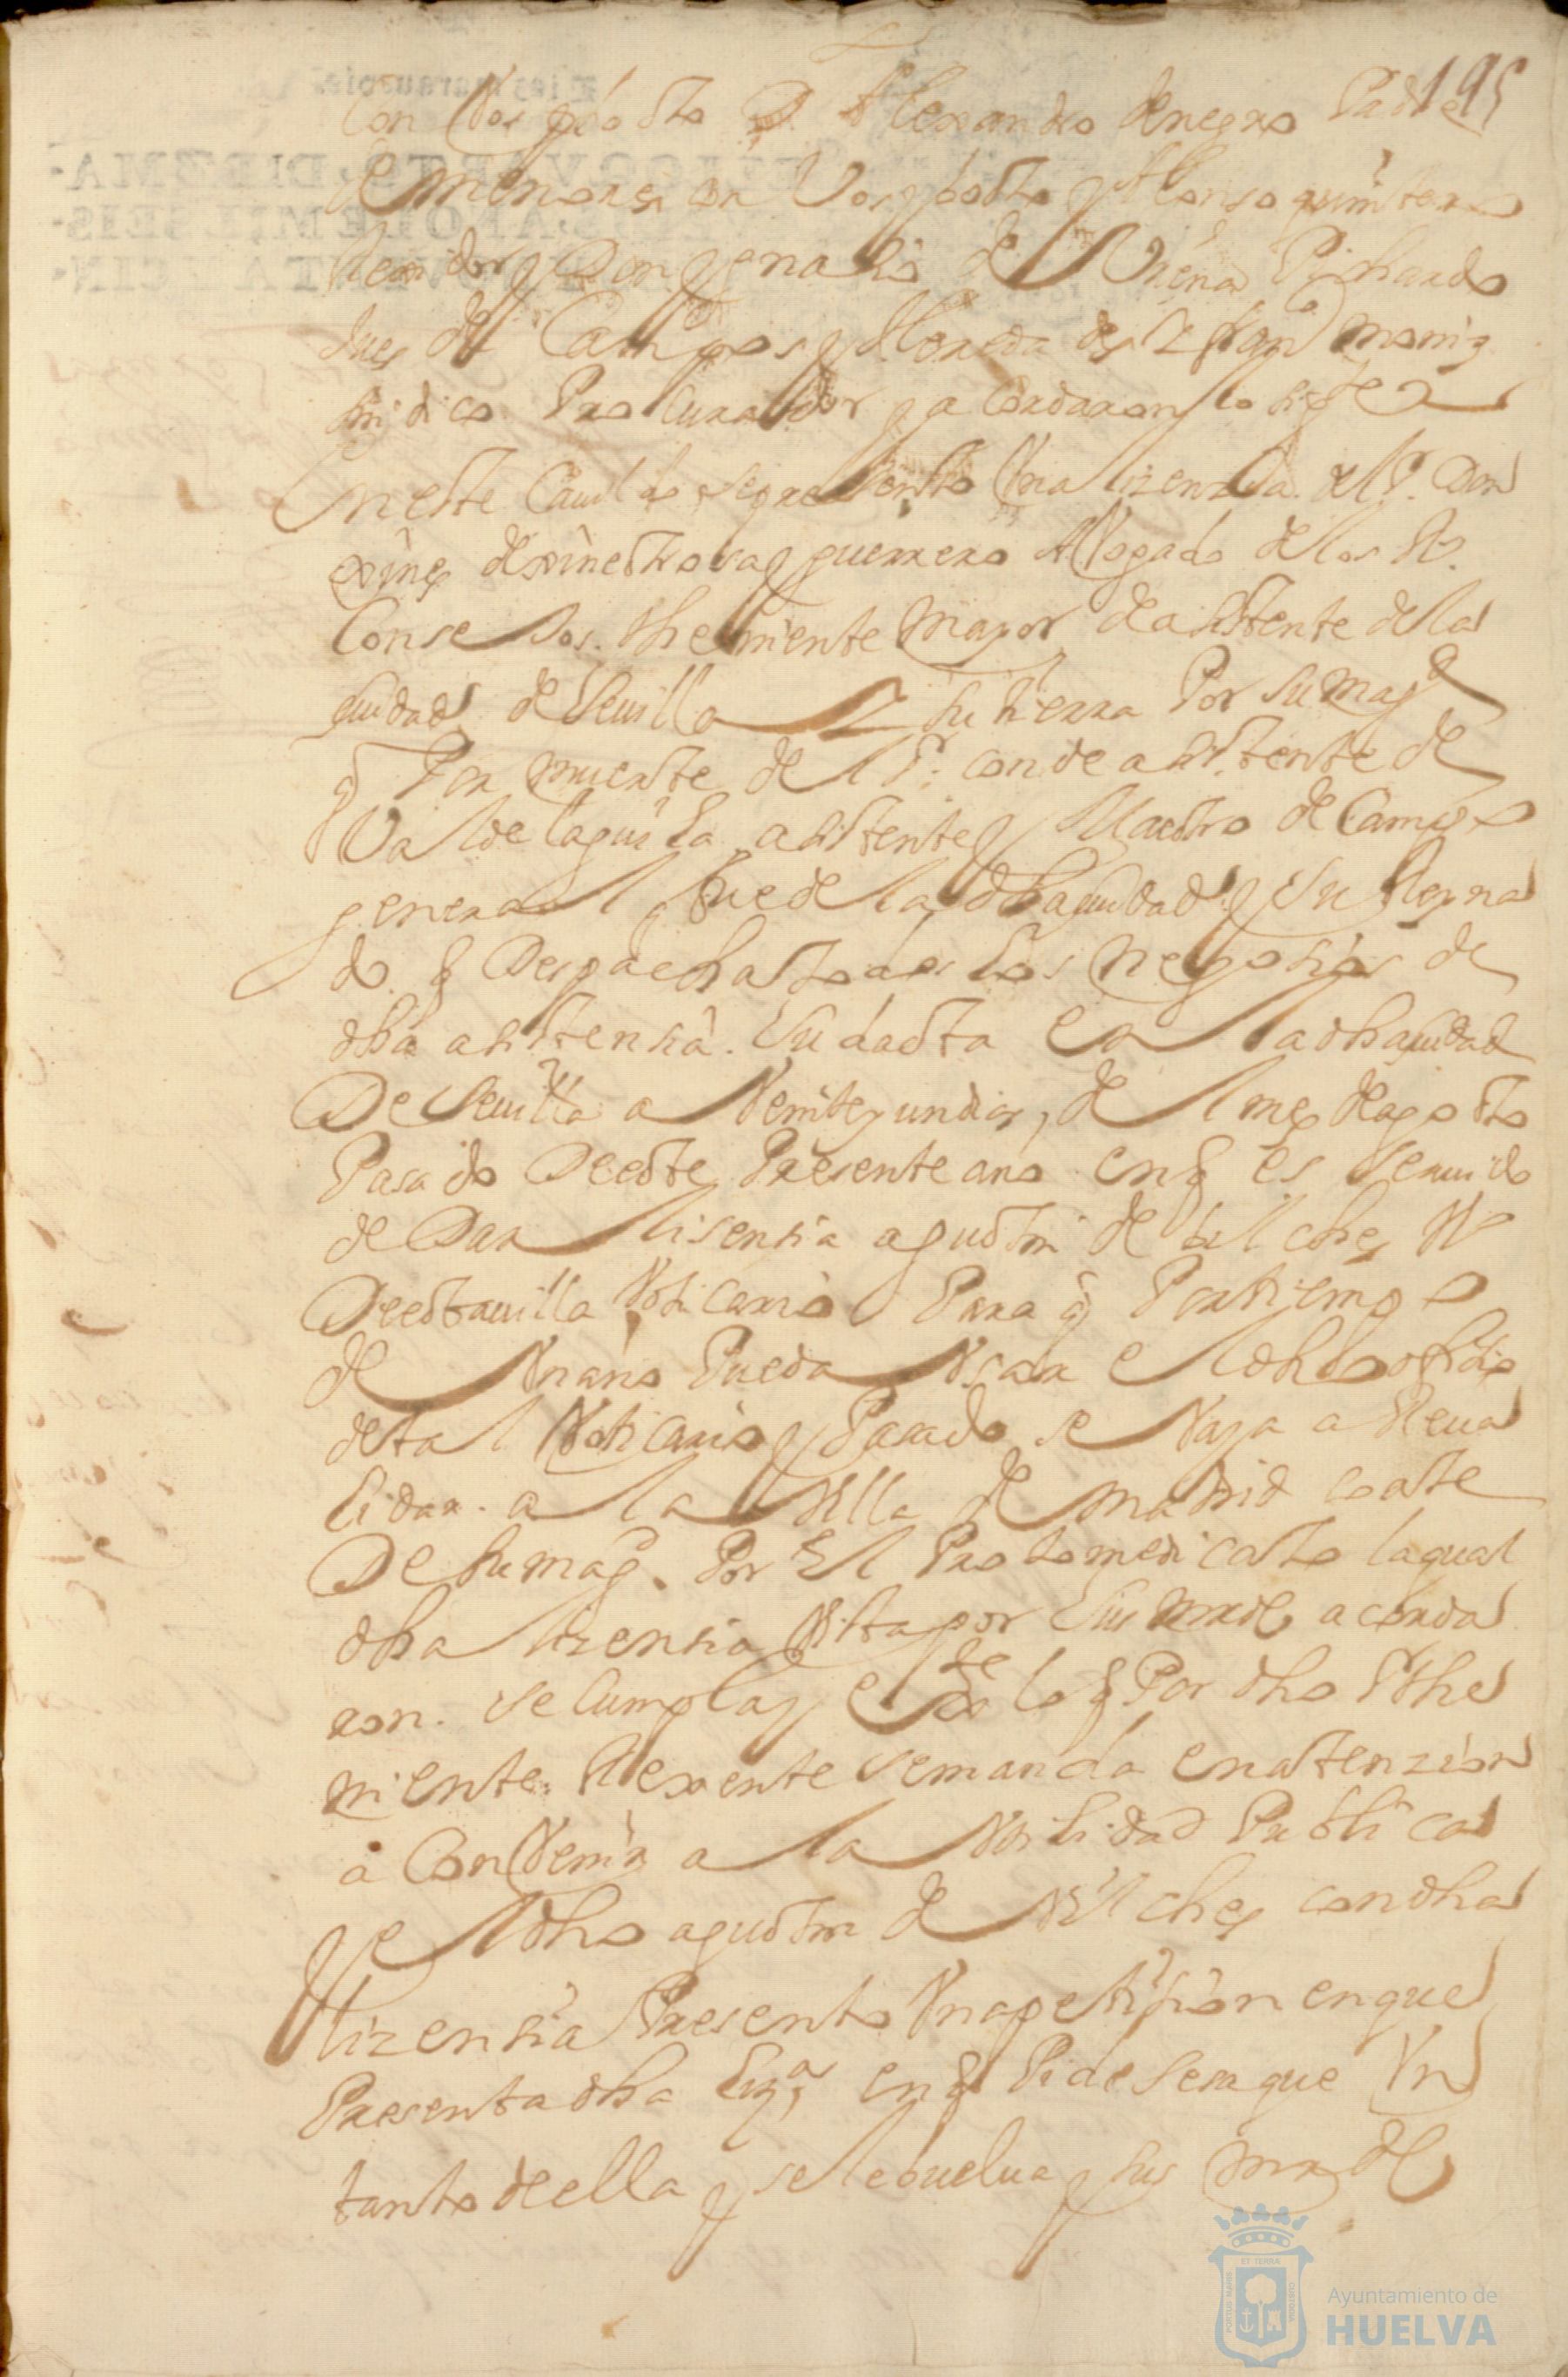 195
Con Vos y boto D Alexandro denegro Padre
de menores con Vos y boto y Alonso quintero
Rexidor y Don Ygnacio de Vrena Pichardo
Jues de Campos y Hereda des y fran moniz
sindico Procurador y acordaron lo sigte
En este Cauildo se presento Vna lizenzia del S. Don
xines de xinestrosa y guerrero Abogado de los Rs.
Consejos. theniente mayor de asistente de la
ciudad de Seuilla y su tierra Por su magd
q Por muerte del Sr. conde asistente de
Valdelaguila asistente y Maestro de Campo
general que de la dha ciudad y su Reyna
do. q Despacha todos los negosios de
dha asistensia. su dacta en la dha ciudad
De Seuilla a Veinte y un dias, del mes de agosto
Pasado De este Presente ano en q es seruido
de Dar lisensia agustin de bilches Vo
De esta uilla Boticario Para q Por tiempo
de Vn ano Pueda Vsar el dho ofisio
de tal Boticario y Pasado se Vaya a Reua
lidar. a la Villa de madrid corte
De su magd. Por El Protomedicato la qual
dha lizensia Vista por sus mrds acorda
ron. se cumpla y ete lo q Por dho S the
niente Rexente se manda en atenzion
a Conbenir a la Vtilidad Publica
y el dho agustin de Vilches con dha
lizensia Presento Vna petision en que
Presenta dha liza, en q Pide se saque Vn
tanto de ella y se le buelua y sus mrds
Ayuntamiento de
HUELVA